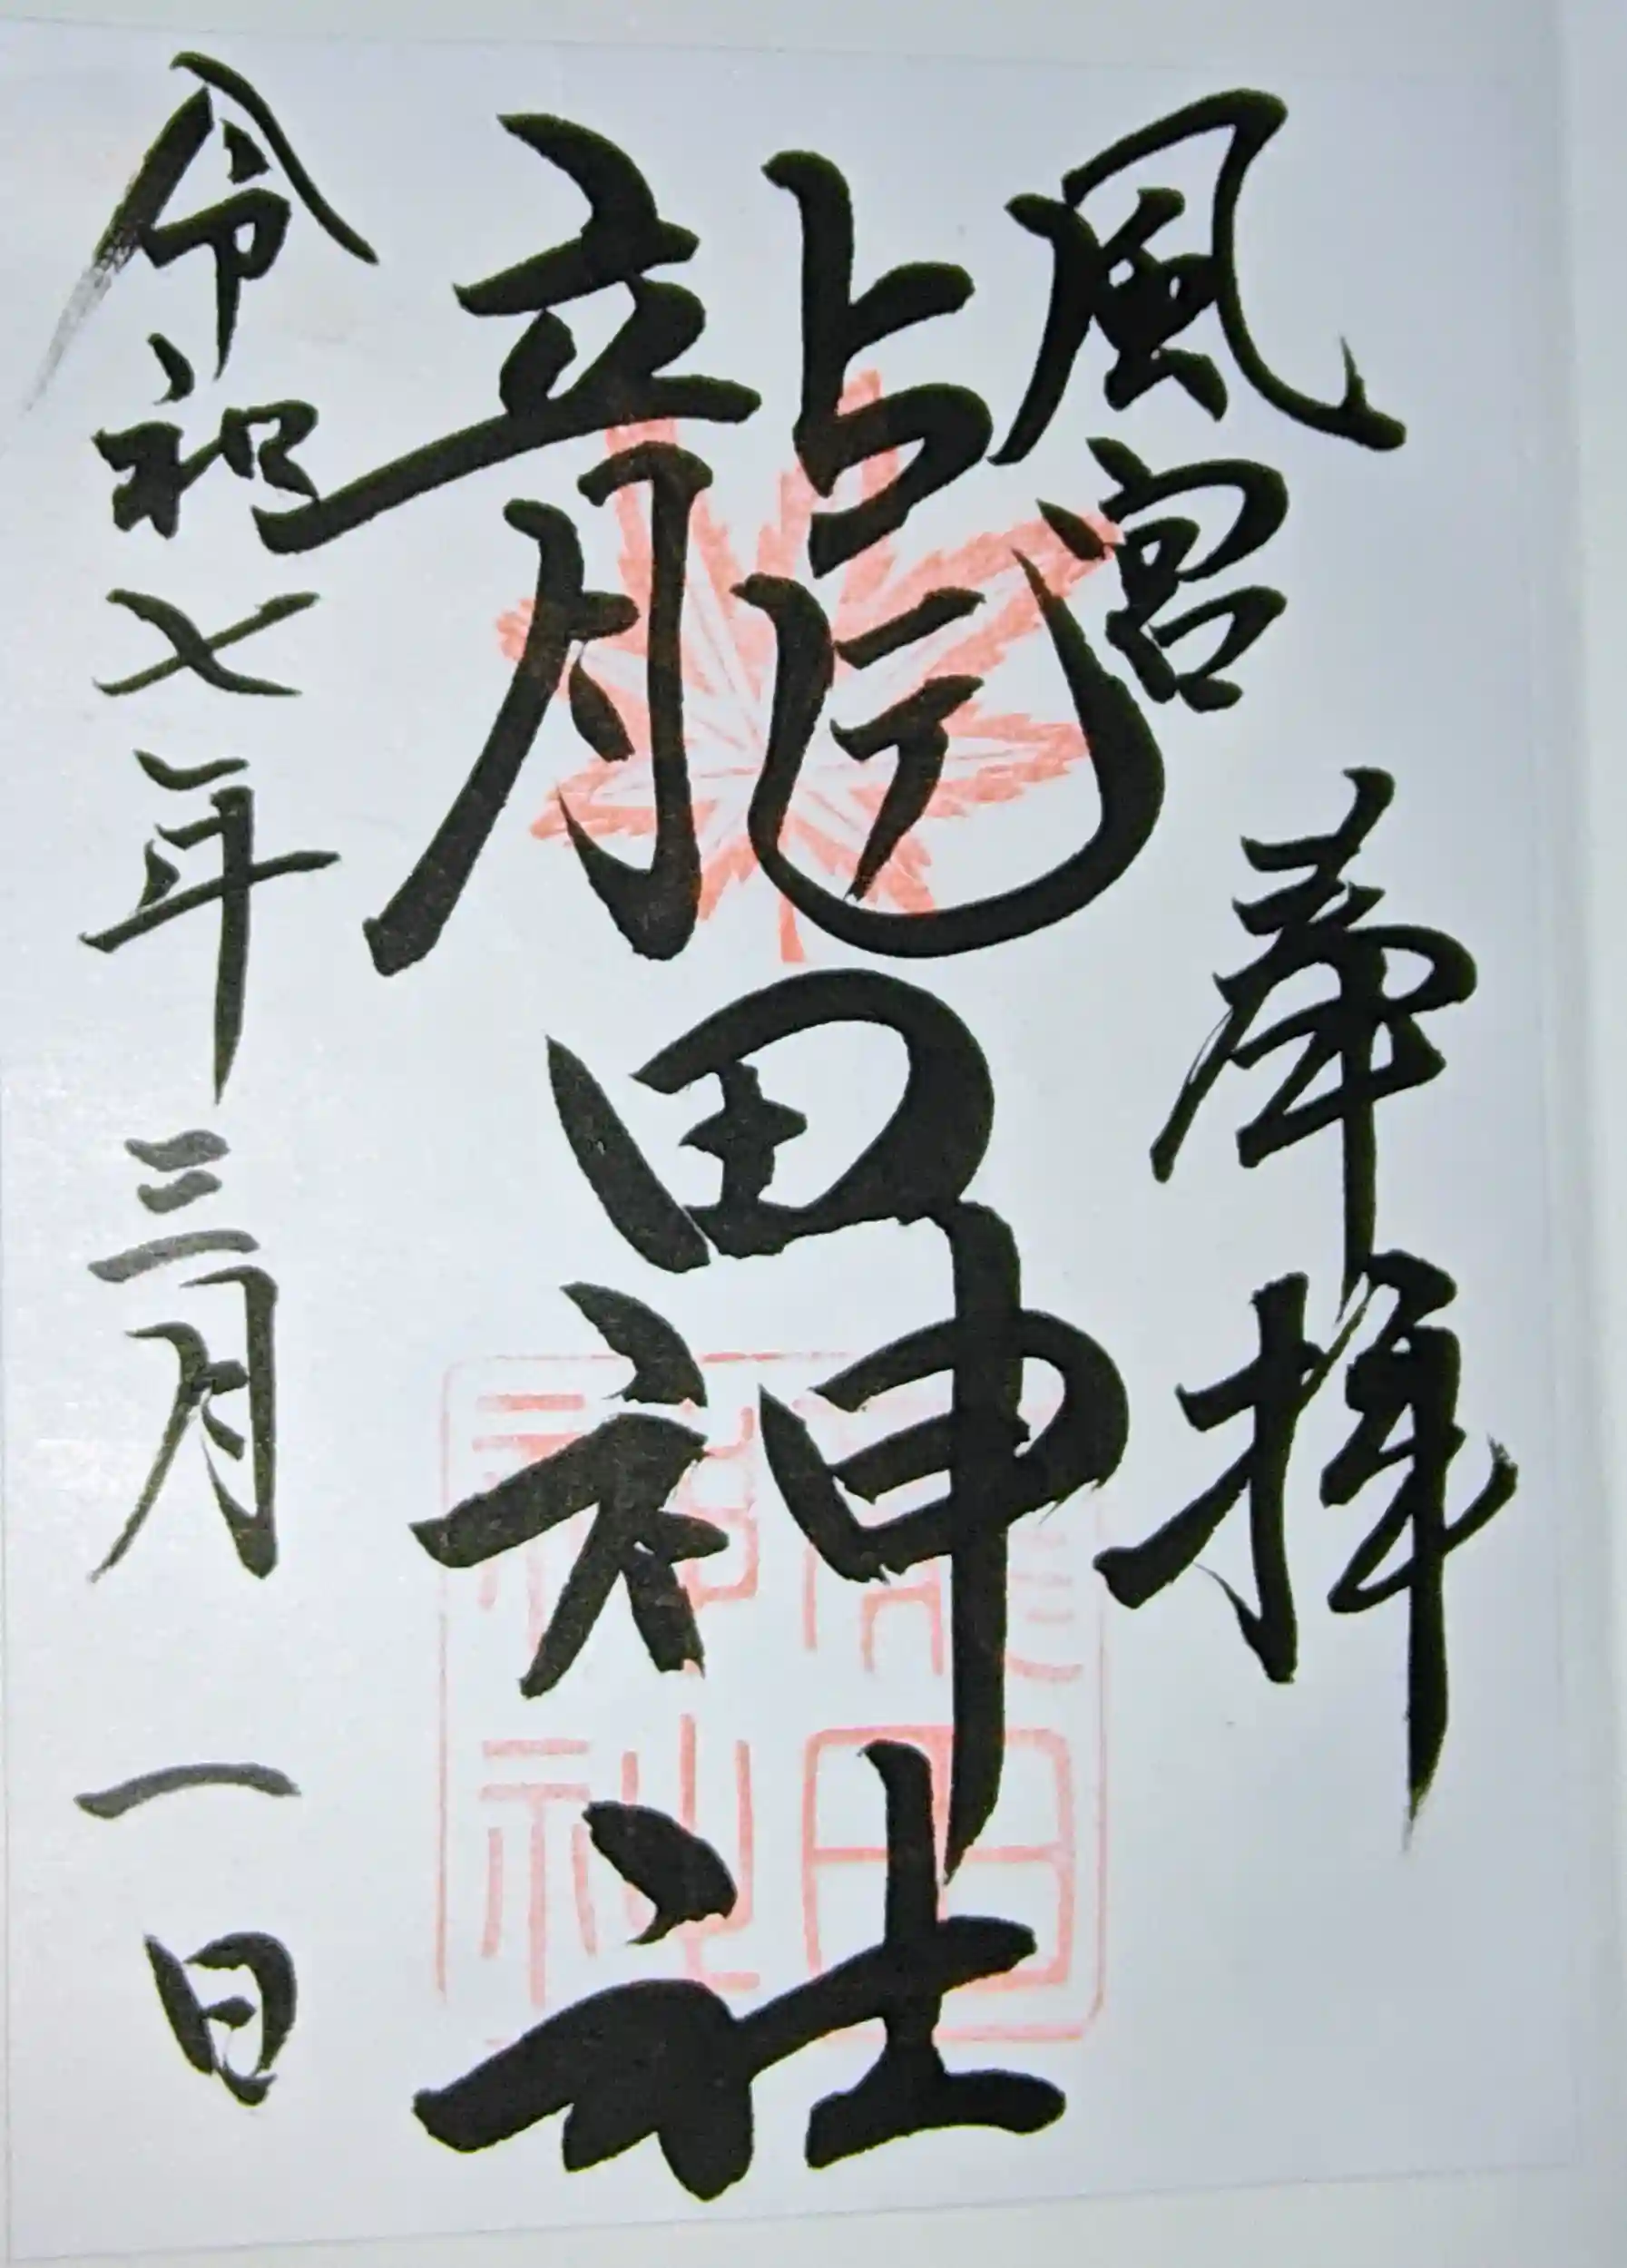 風宮
奉拝
龍田神社
龍田神社
令和七年三月一日